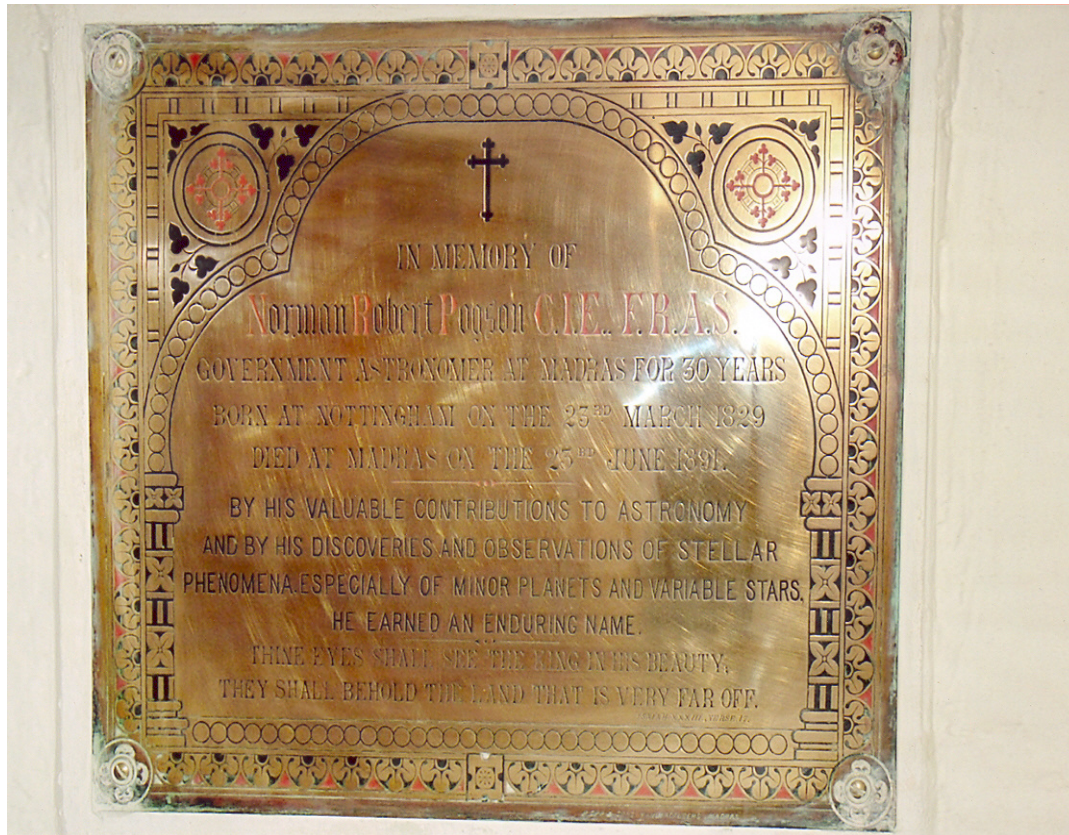 IN MEMORY OF
Norman Robert Pogson C.I.E., F.R.A.S.
GOVERNMENT ASTRONOMER AT MADRAS FOR 30 YEARS
BORN AT NOTTINGHAM ON THE 23RD MARCH 1829
DIED AT MADRAS ON THE 23RD JUNE 1891.
BY HIS VALUABLE CONTRIBUTIONS TO ASTRONOMY
AND BY HIS DISCOVERIES AND OBSERVATIONS OF STELLAR
PHENOMENA. ESPECIALLY OF MINOR PLANETS AND VARIABLE STARS,
HE EARNED AN ENDURING NAME.
THINE EYES SHALL SEE THE KING IN HIS BEAUTY;
THEY SHALL BEHOLD THE LAND THAT IS VERY FAR OFF.
ISAIAH XXXIII, VERSE 17.
MADRAS